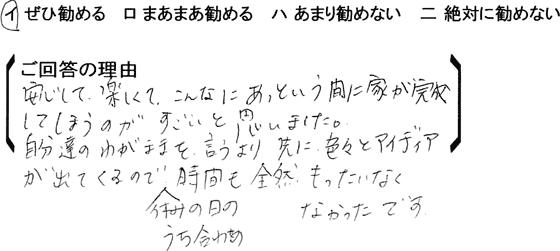 イ ぜひ勧める ロ まあまあ勧める ハ あまり勧めない 二 絶対に勧めない
ご回答の理由
安心して、楽しくて、こんなに あっという間に家が完成
してしまうのが すごいと 思いました。
自分達の わがままを 言うより 先に 色々と アイディア
が出てくるので 時間も 全然 もったいなく
なかったです。
休みの日の
うち合わせ